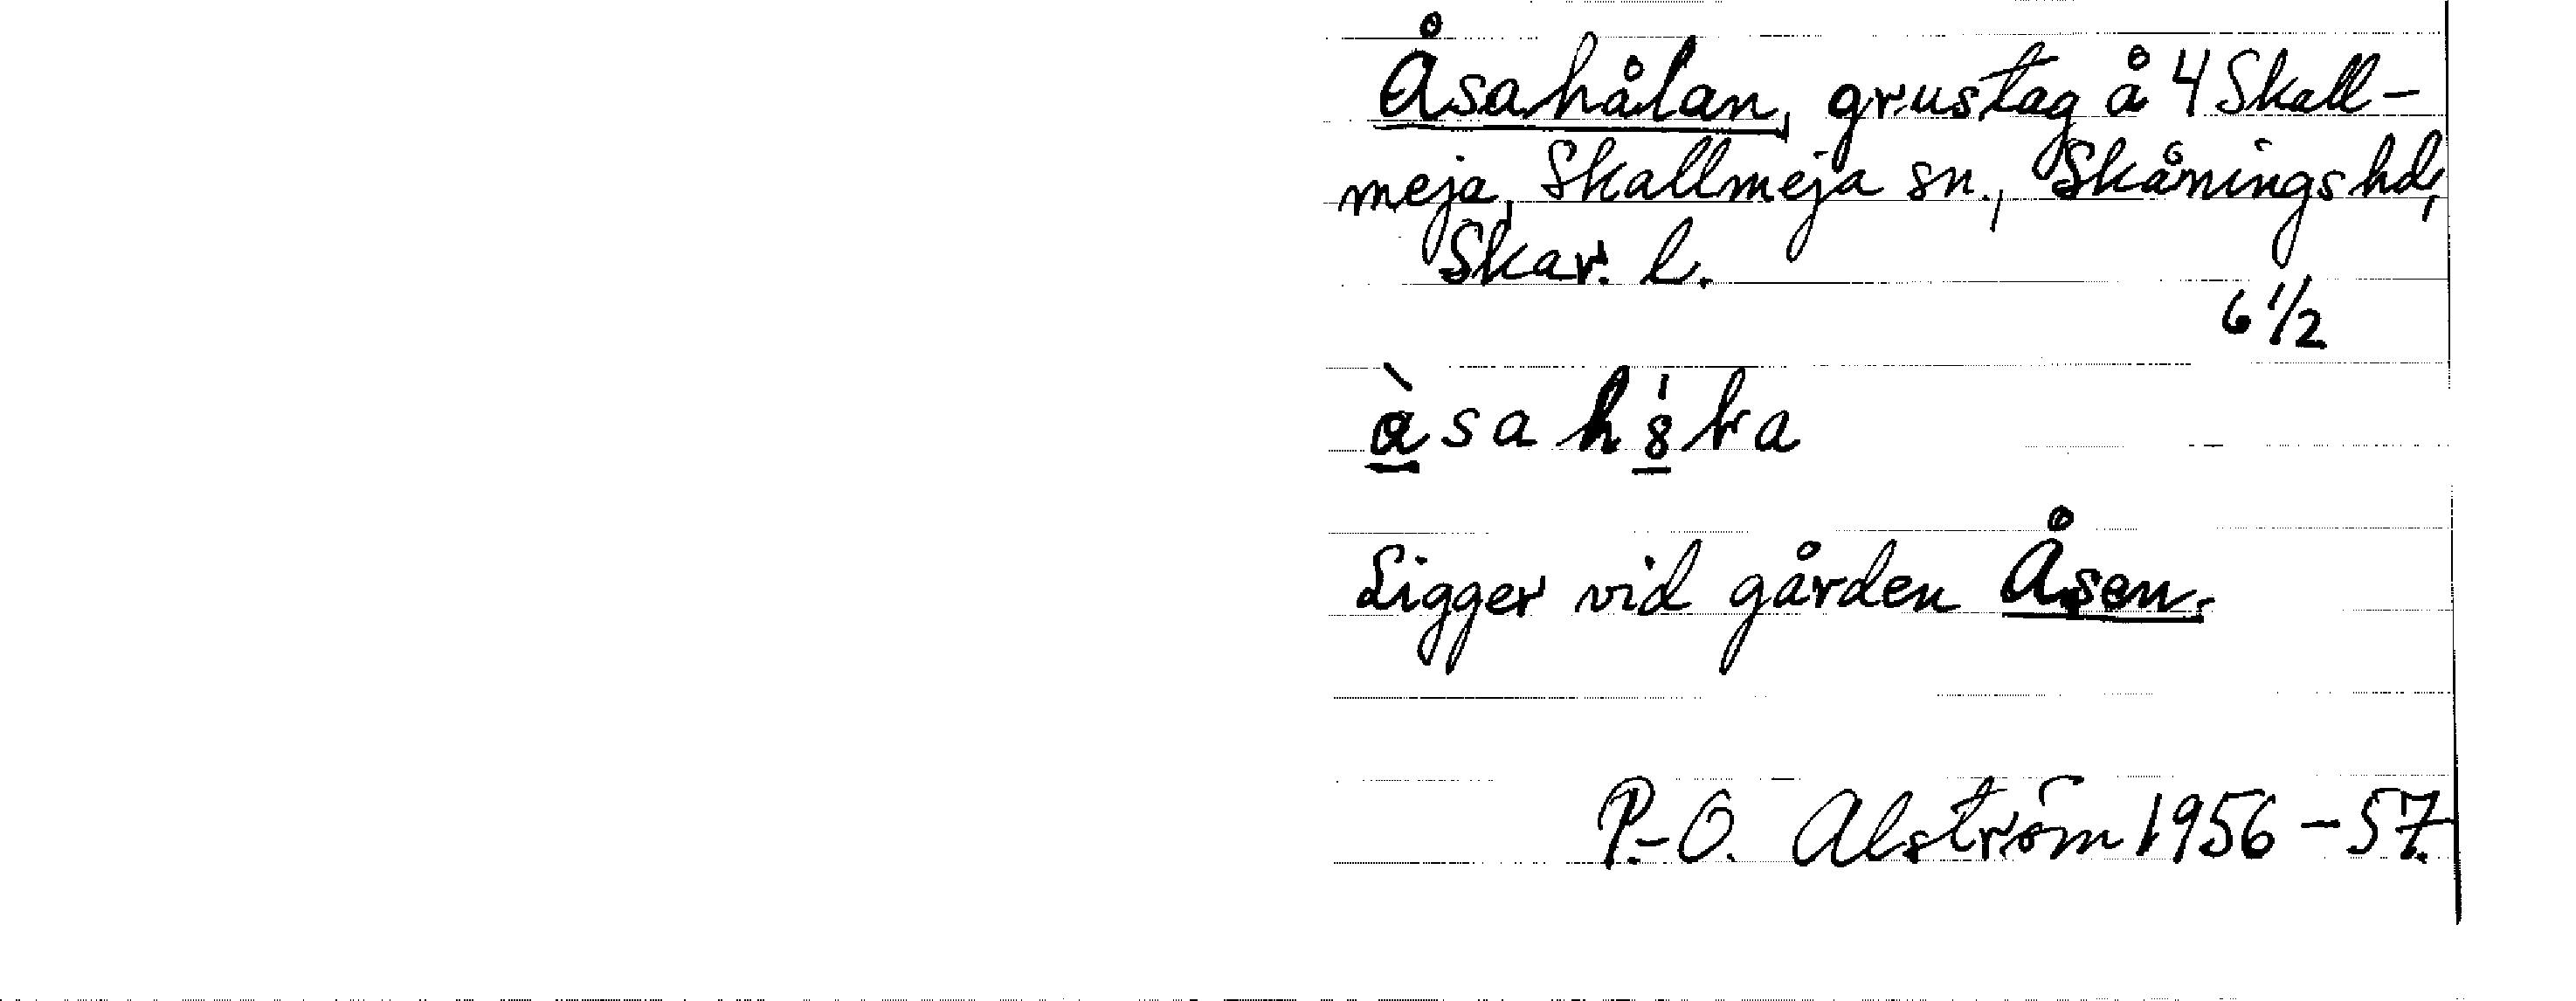 Åsahålan, grustag å 4 Skall-
meja, Skallmeja sn., Skånings hd,
Skar. l.
6 1/2
Ligger vid gården Åsen.
P.-O. Alström 1956-57.